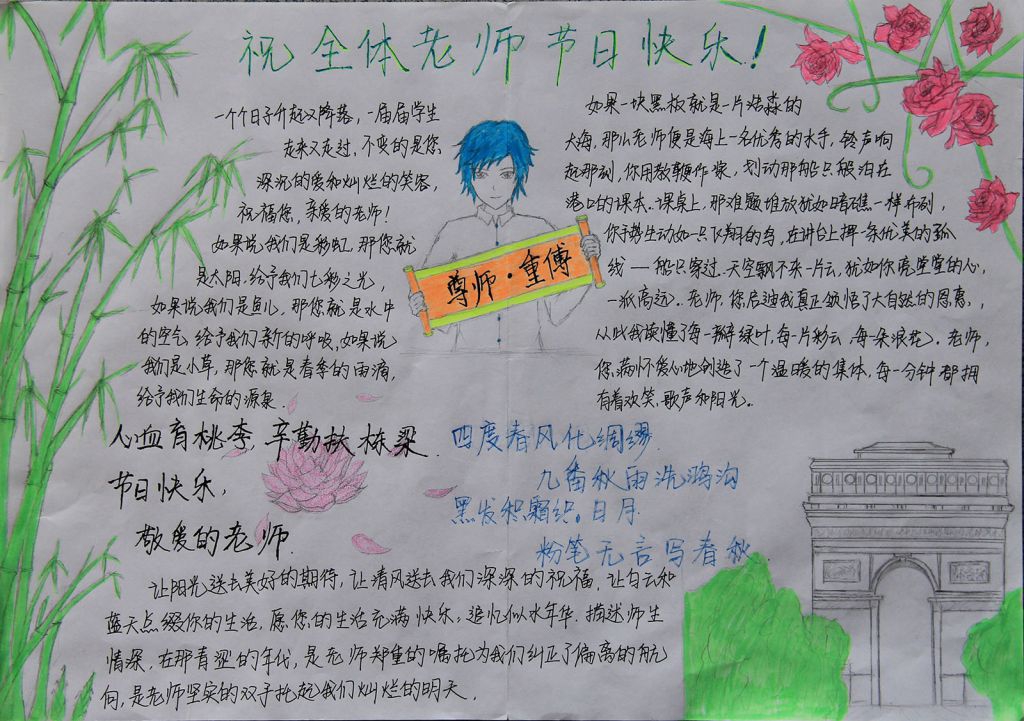 祝全体老师节日快乐!
一个个日子升起又降落,一届届学生
走来又走过,不变的是您
深沉的爱和灿烂的笑容,
祝福您,亲爱的老师!
如果说我们是彩虹,那您就
是太阳,给予我们七彩之光,
如果说我们是鱼儿,那您就是水中
的空气,给予我们新的呼吸,如果说
我们是小草,那您就是春季的雨滴,
给予我们生命的源泉.
尊师·重傅
如果一块黑板就是一片浩淼的
大海,那么老师便是海上一名优秀的水手,铃声响
起那刻,你用教鞭作桨,划动那船只般泊在
港口的课本.课桌上,那难题堆放犹如暗礁一样布列,
你手势生动如一只飞翔的鸟,在讲台上挥一条优美的弧
线——船只穿过.天空飘不来一片云,犹如你亮堂堂的心,
一派高远.老师,您启迪我真正领悟了大自然的恩惠,,
从此我读懂了每一瓣绿叶,每一片彩云,每一朵浪花,老师,
您,满怀爱心地创造了一个温暖的集体,每一分钟都拥
有着欢笑、歌声和阳光.
心血育桃李,辛勤扶栋梁.
节日快乐,
敬爱的老师.
四度春风化绸缪.
九番秋雨洗鸿沟
黑发积霜织。日月.
粉笔无言写春秋.
让阳光送去美好的期待,让清风送去我们深深的祝福,让白云和
蓝天点缀你的生活,愿您的生活充满快乐,追忆似水年华.描述师生
情深.在那青涩的年代,是老师郑重的嘱托为我们纠正了偏离的航
向,是老师坚实的双手托起我们灿烂的明天.